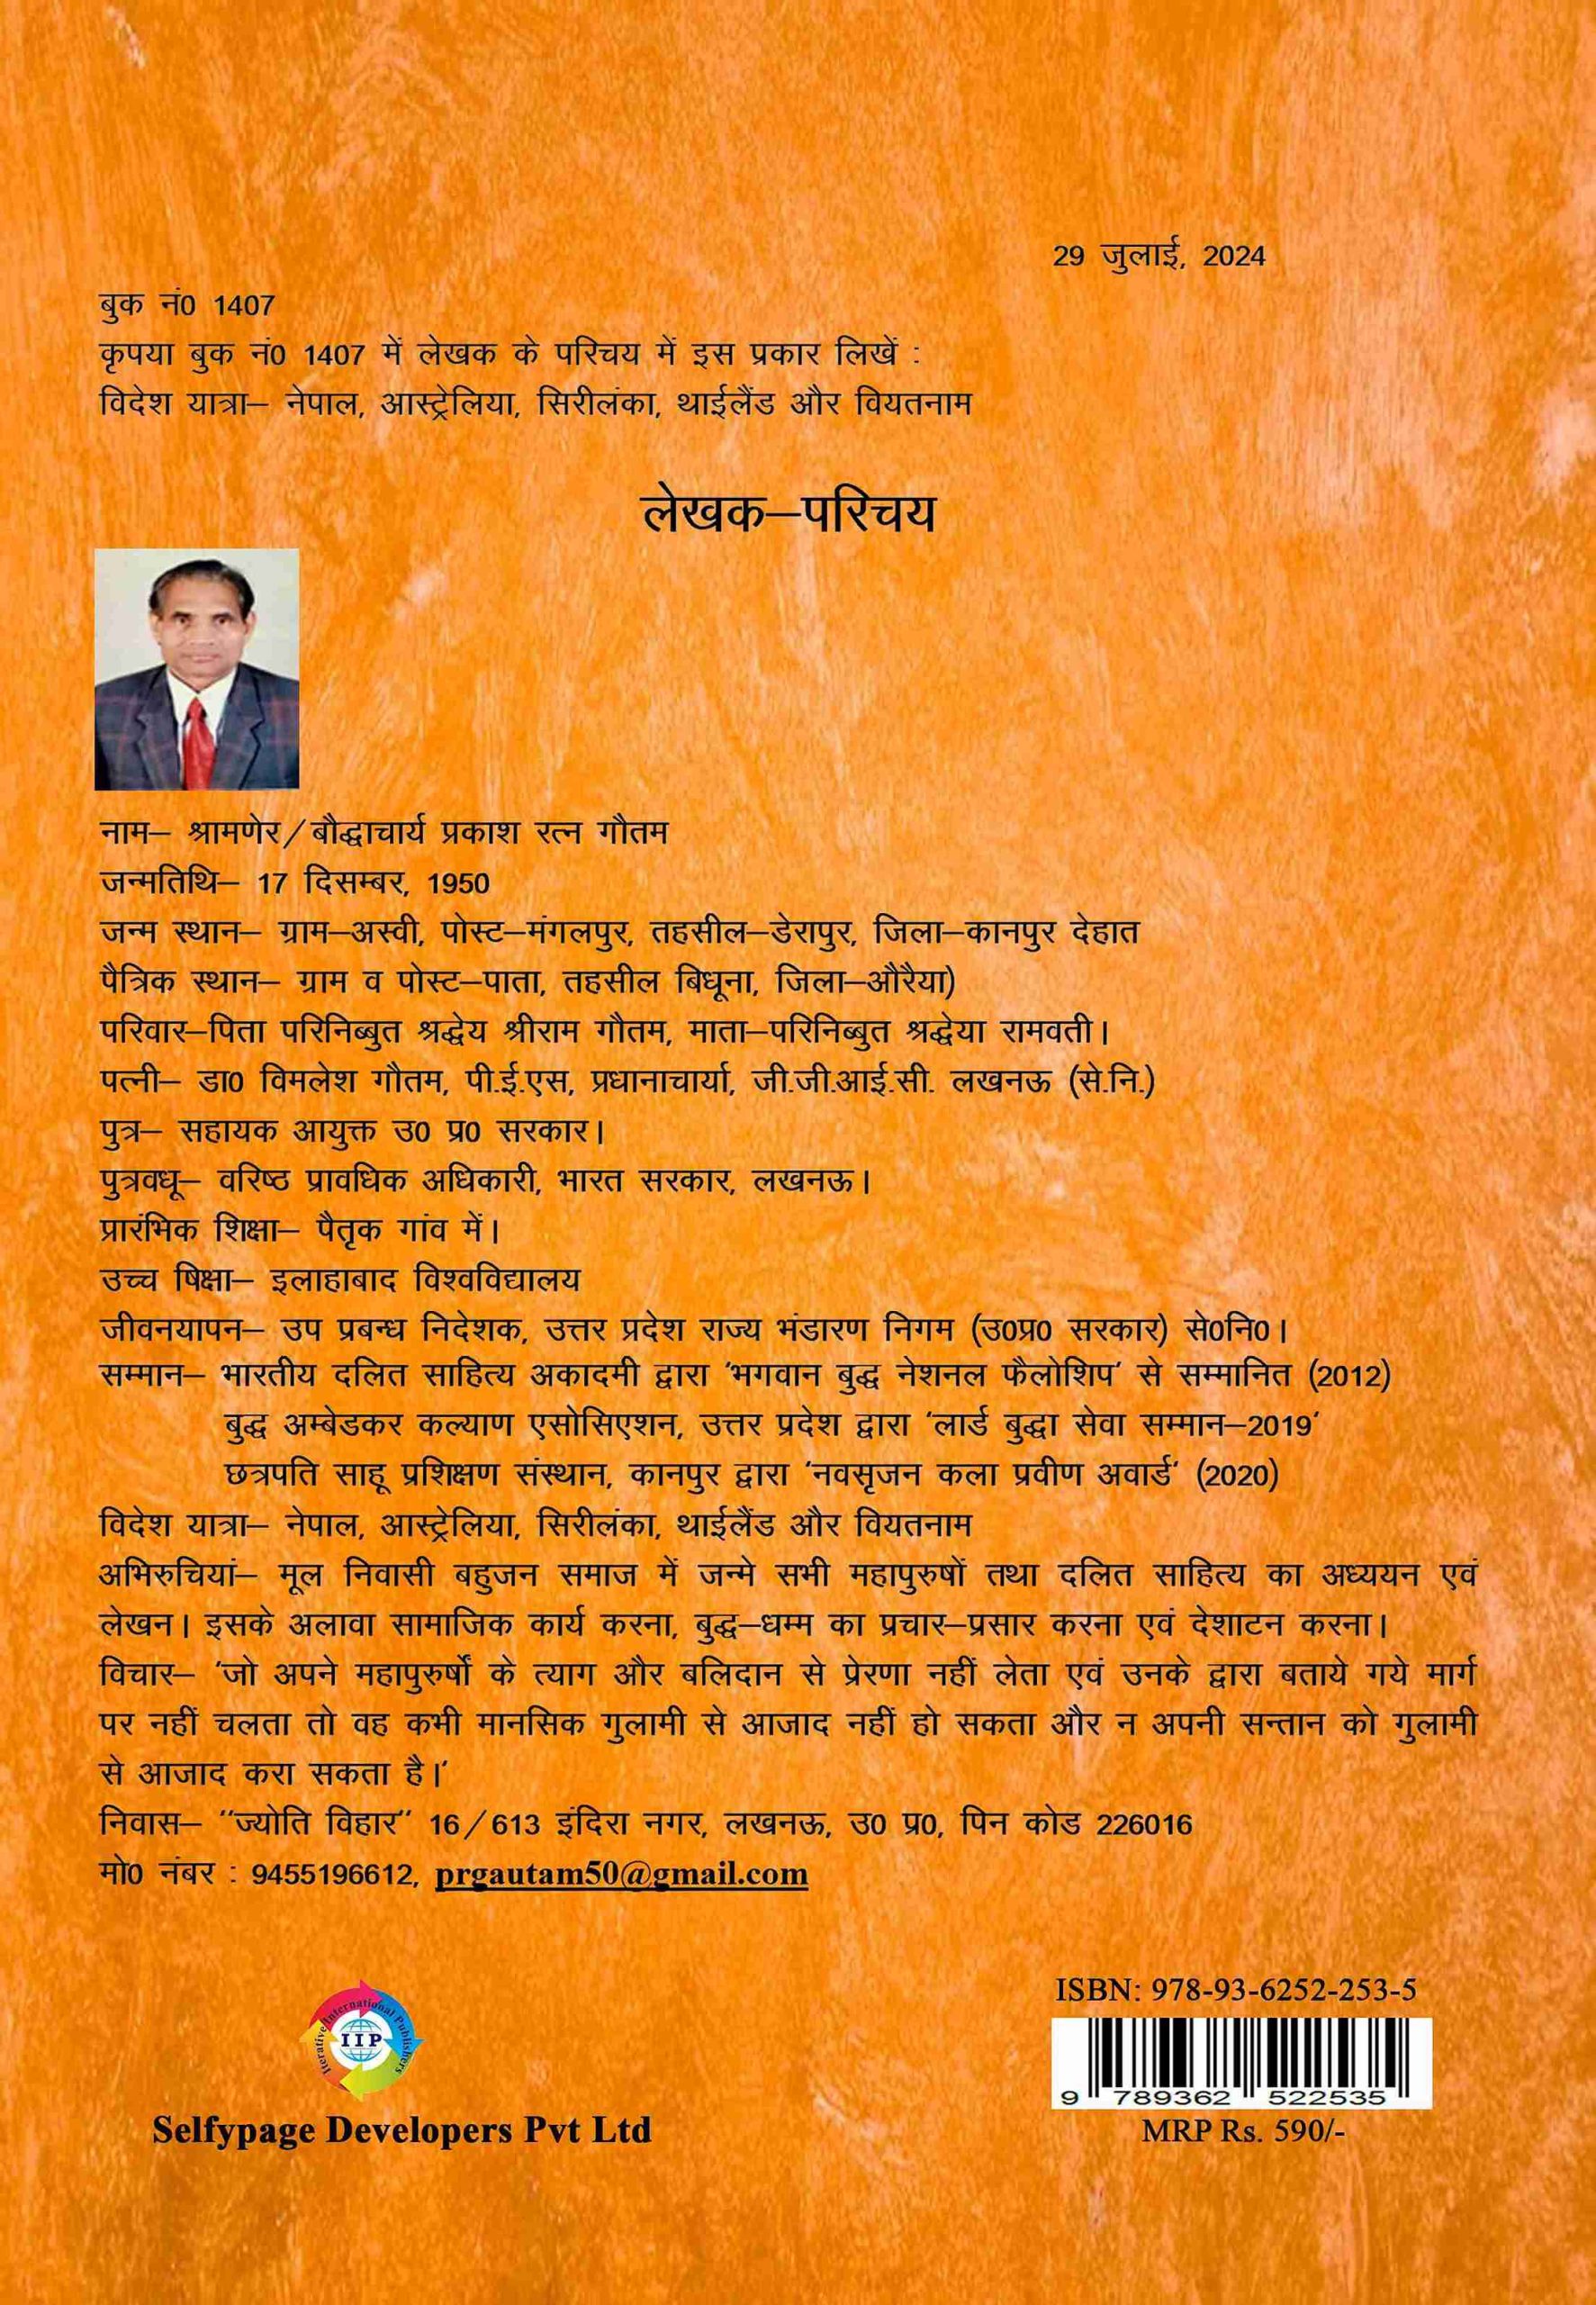 29 जुलाई, 2024
बुक नं0 1407
कृपया बुक नं0 1407 में लेखक के परिचय में इस प्रकार लिखें :
विदेश यात्रा– नेपाल, आस्ट्रेलिया, सिरीलंका, थाईलैंड और वियतनाम
लेखक–परिचय
नाम– श्रामणेर/बौद्धाचार्य प्रकाश रत्न गौतम
जन्मतिथि– 17 दिसम्बर, 1950
जन्म स्थान– ग्राम–अस्वी, पोस्ट–मंगलपुर, तहसील–डेरापुर, जिला–कानपुर देहात
पैत्रिक स्थान– ग्राम व पोस्ट–पाता, तहसील बिधूना, जिला–औरैया)
परिवार–पिता परिनिब्बुत श्रद्धेय श्रीराम गौतम, माता–परिनिब्बुत श्रद्धेया रामवती।
पत्नी– डा0 विमलेश गौतम, पी.ई.एस, प्रधानाचार्या, जी.जी.आई.सी. लखनऊ (से.नि.)
पुत्र– सहायक आयुक्त उ0 प्र0 सरकार।
पुत्रवधू– वरिष्ठ प्रावधिक अधिकारी, भारत सरकार, लखनऊ।
प्रारंभिक शिक्षा– पैतृक गांव में।
उच्च षिक्षा– इलाहाबाद विश्वविद्यालय
जीवनयापन– उप प्रबन्ध निदेशक, उत्तर प्रदेश राज्य भंडारण निगम (उ0प्र0 सरकार) से0नि0।
सम्मान– भारतीय दलित साहित्य अकादमी द्वारा 'भगवान बुद्ध नेशनल फैलोशिप' से सम्मानित (2012)
बुद्ध अम्बेडकर कल्याण एसोसिएशन, उत्तर प्रदेश द्वारा 'लार्ड बुद्धा सेवा सम्मान–2019'
छत्रपति साहू प्रशिक्षण संस्थान, कानपुर द्वारा 'नवसृजन कला प्रवीण अवार्ड' (2020)
विदेश यात्रा– नेपाल, आस्ट्रेलिया, सिरीलंका, थाईलैंड और वियतनाम
अभिरुचियां– मूल निवासी बहुजन समाज में जन्मे सभी महापुरुषों तथा दलित साहित्य का अध्ययन एवं
लेखन। इसके अलावा सामाजिक कार्य करना, बुद्ध–धम्म का प्रचार–प्रसार करना एवं देशाटन करना।
विचार– 'जो अपने महापुरुर्षों के त्याग और बलिदान से प्रेरणा नहीं लेता एवं उनके द्वारा बताये गये मार्ग
पर नहीं चलता तो वह कभी मानसिक गुलामी से आजाद नहीं हो सकता और न अपनी सन्तान को गुलामी
से आजाद करा सकता है।'
निवास– "ज्योति विहार" 16/613 इंदिरा नगर, लखनऊ, उ0 प्र0, पिन कोड 226016
मो0 नंबर : 9455196612, prgautam50@gmail.com
Iterative International Publishers
IIP
Selfypage Developers Pvt Ltd
ISBN: 978-93-6252-253-5
9 789362 522535
MRP Rs. 590/-